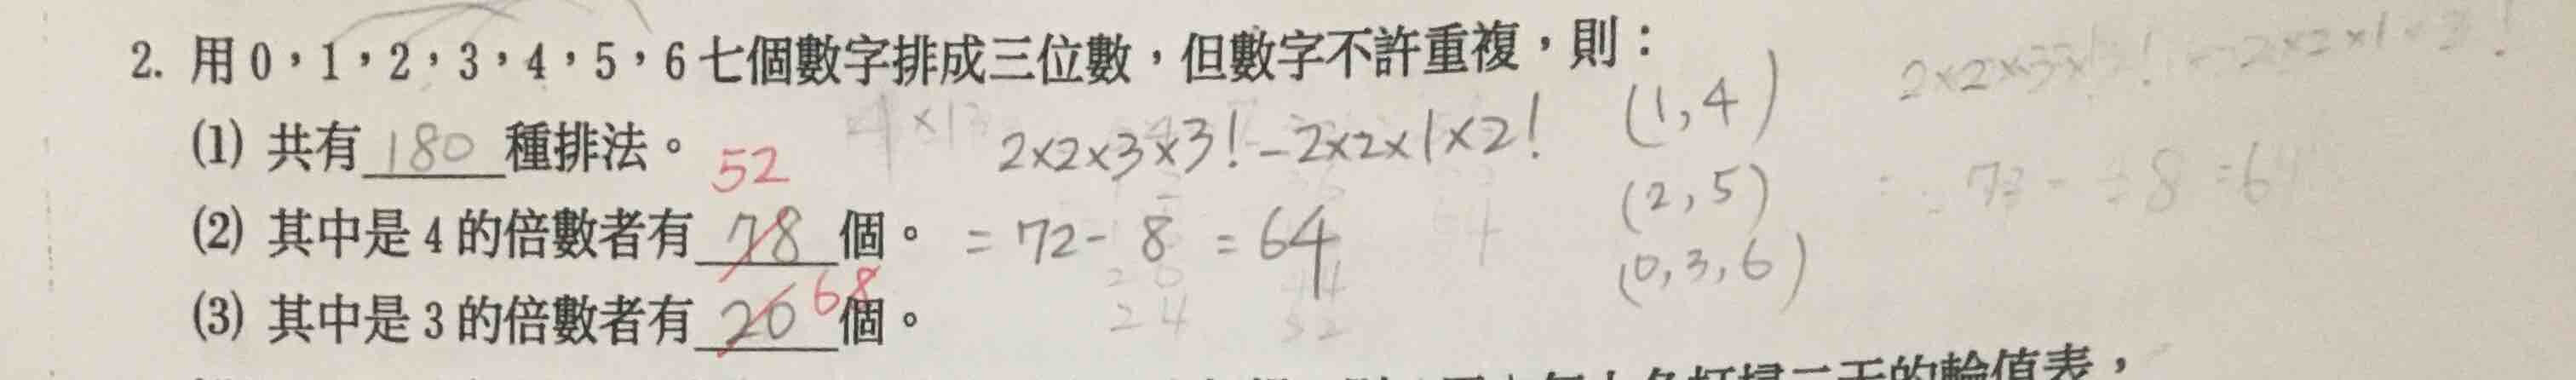 2. 用0，1，2，3，4，5，6七個數字排成三位數，但數字不許重複，則：
(1) 共有 180 種排法。
52
(2) 其中是4的倍數者有 78 個。
(3) 其中是3的倍數者有 20 68 個。
2×2×3×3!-2×2×1×2!
= 72 - 8 = 64
(1,4)
(2,5)
(0,3,6)